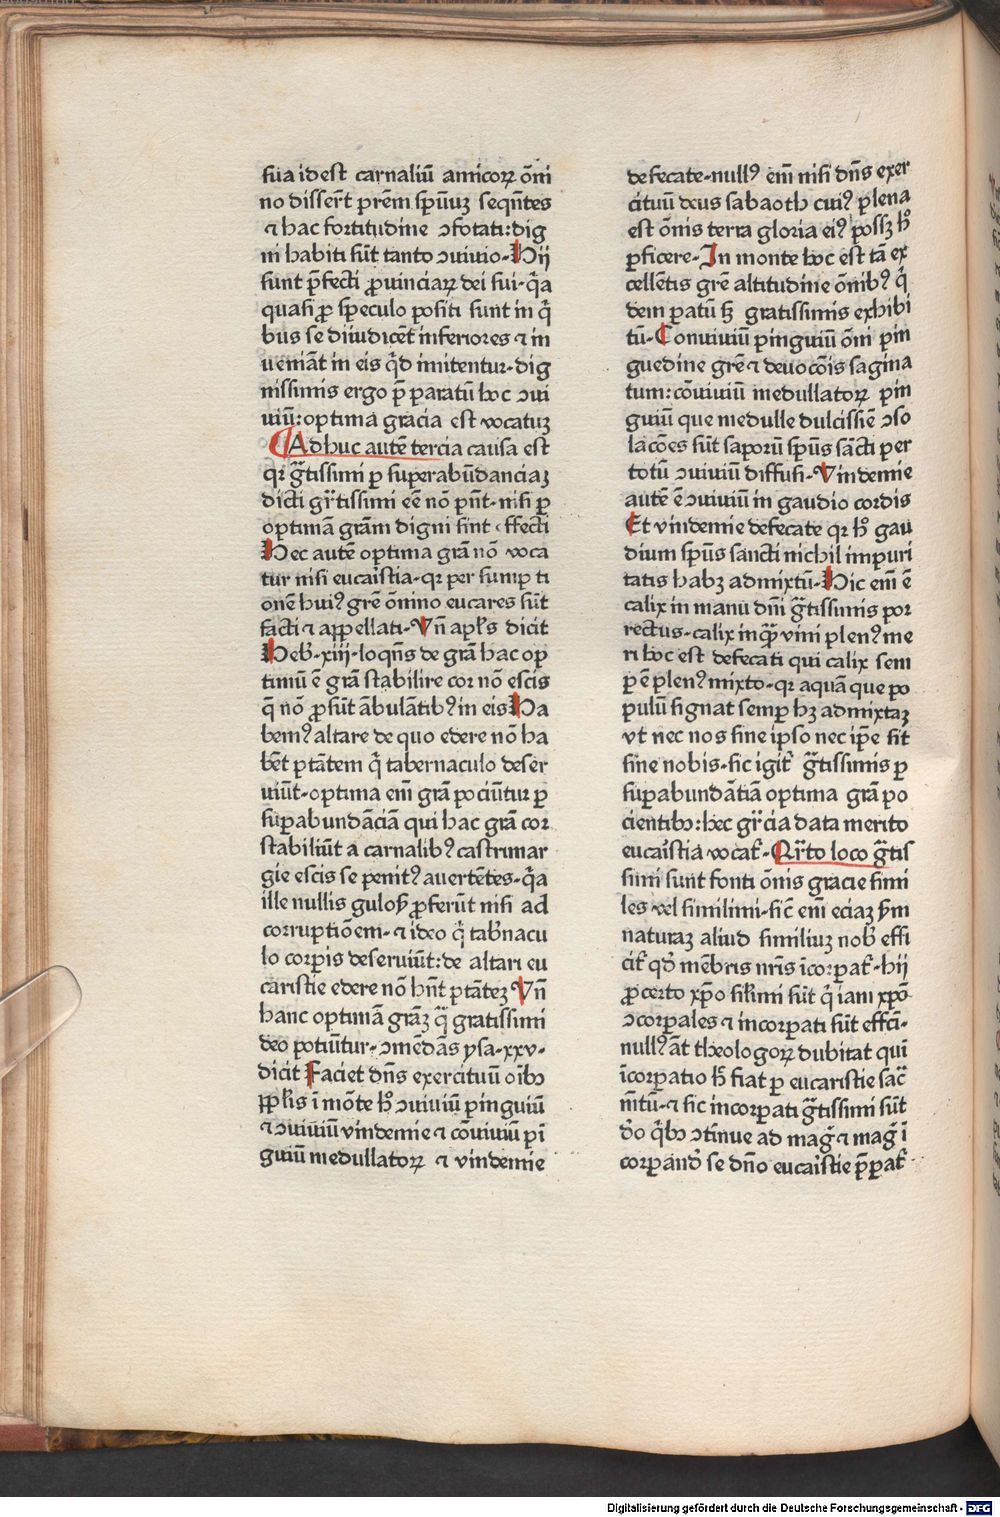 sua id est carnaliū amicoꝝ ōni
no disserūt prēm spūuꝫ seqn̄tes
⁊ hac fortitudine ꝯfotati: dig
ni habiti sūt tanto ꝯuiuio. Hij
sunt p̄fecti ꝓuinciaꝝ dei sui. q̄a
quasi ꝓ speculo positi sunt in q̄
bus se diiudicēt inferiores ⁊ in
ueniāt in eis q̄d imitentur. dig
nissimis ergo p̄ paratū hoc ꝯui
uiū: optima gracia est vocatuꝫ
Adhuc autē tercia causa est
qꝛ g̃tissimi ꝑ superabūdanciaꝫ
dicti gr̄tissimi eē nō pn̄t. nisi ꝑ
optimā grām digni sint effecti
Hec autē optima grā nō voca
tur nisi eucaristia. qꝛ per sump ti
onē huiꝰ grē ōnino eucares sūt
facti ⁊ appellati. Vn̄ apl̄s dicit
Heb̄. xiii. loqn̄s de grā hac op
timū ē grā stabilire cor nō escis
q̄ nō ꝓsūt ābulātibꝰ in eis Ha
bemꝰ altare de quo edere nō ha
bēt ptātem q̄ tabernaculo deser
uiūt. optima em̄ grā pociūtur ꝑ
suꝑabundāciā qui hac grā cor
stabiliūt a carnalibꝰ castrimar
gie escis se penitꝰ auertētes. q̄a
ille nullis gulosꝭ ꝓferūt nisi ad
corruptiōem. ⁊ ideo q̄ tab̄nacu
lo corpis deseruiūt: de altari eu
caristie edere nō hn̄t ptāteꝫ Vn̄
hanc optimā grāꝫ q̄ gratissimi
deo potiūtur. ꝯmēdās ysa. xxv.
dicit Faciet dn̄s exercituū oībꝫ
ppl̄is ī mōte hꝰ ꝯuiuiū pinguiū
⁊ ꝯuiuiū vindemie ⁊ cōuiuiū pī
guiū medullatoꝝ ⁊ vindemie
defecate. nullꝰ em̄ nisi dn̄s exer
cituū deus sabaoth cuiꝰ plena
est ōnis terra gloria eiꝰ possꝫ hꝰ
ꝑficere. In monte hoc est tā ex
cellētis grē altitudine ōnibꝰ q̄
dem patū sꝫ gratissimis exhibi
tū. Conuiuiū pinguiū ōni pin
guedine grē ⁊ deuocōis sagina
tum: cōuiuiū medullatoꝝ pin
guiū que medulle dulcissiē ꝯso
lacōes sūt saporū spūs sācti per
totū ꝯuiuiū diffusi. Vindemie
autē ē ꝯuiuiū in gaudio cordis
Et vindemie defecate qꝛ hꝰ gau
dium spūs sancti nichil impuri
tatis habꝫ admixtū. Hic em̄ ē
calix in manu dn̄i g̃tissimis por
rectus. calix inq̄ vini plenꝰ me
ri hoc est defecati qui calix sem
ꝑ ē plenꝰ mixto. qꝛ aquā que po
pulū signat semꝑ hꝫ admixtaꝫ
vt nec nos sine ipso nec ip̄e sit
sine nobis. sic igit̄ g̃tissimis ꝑ
suꝑabundātiā optima grā po
cientibꝫ: hec gr̄cia data merito
eucaristia vocat̄. Qr̄to loco g̃tis
simi sunt fonti ōnis gracie simi
les vel similimi. sic̄ em̄ eciaꝫ ẜm
naturaꝫ aliud similiuꝫ nob̄ effi
cit̄ qd̄ mēbris nr̄is īcorpat̄. hij
ꝓcerto xp̄o sil̄imi sūt q̄ iam xp̄o
ꝯcorpales ⁊ incorpati sūt effcī.
nullꝰ āt theologoꝝ dubitat quī
īcorpatio hꝰ fiat ꝑ eucaristie sac̄
m̄tū. ⁊ sic incorpati g̃tissimi sūt
dō q̄bꝫ ꝯtinue ad mag̃ ⁊ mag̃ ī
corpand̄ se dn̄o eucaristie p̄pat̄
Digitalisierung gefördert durch die Deutsche Forschungsgemeinschaft - DFG